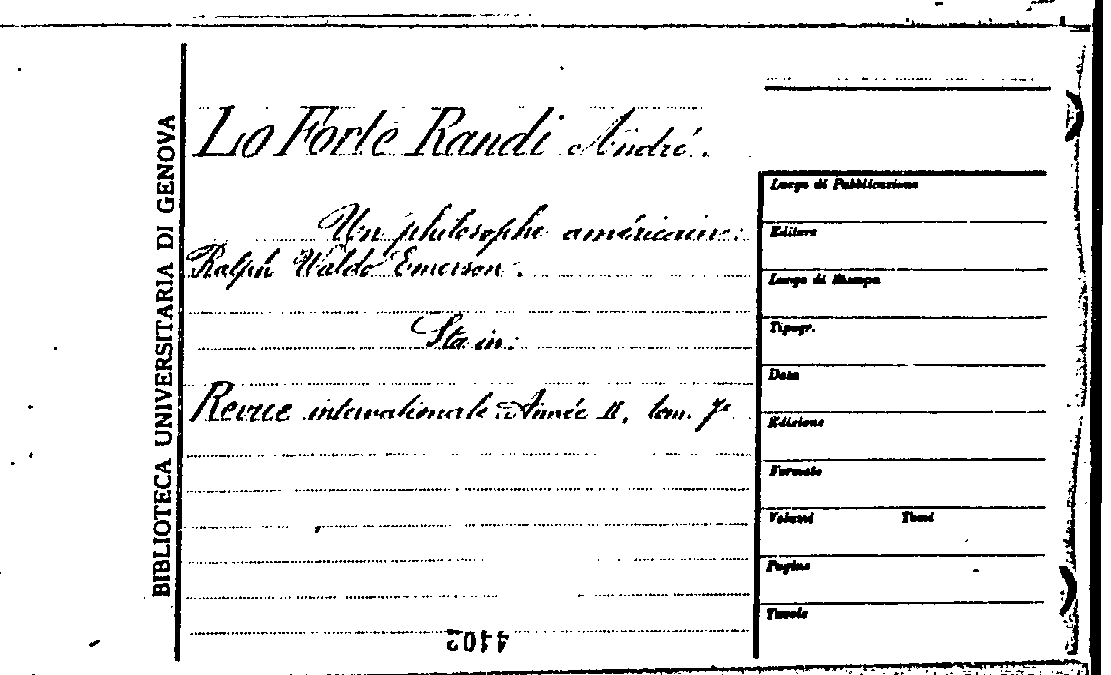 BIBLIOTECA UNIVERSITARIA DI GENOVA
Lo Forte Randi André.
Un philosophe américain:
Ralph Waldo Emerson.
Sta in:
Revue internationale Année II, tom. 7e
Luogo di Pubblicazione
Editore
Luogo di Stampa
Tipogr.
Data
Edizione
Formato
Volumi Tomi
Pagine
Tavole